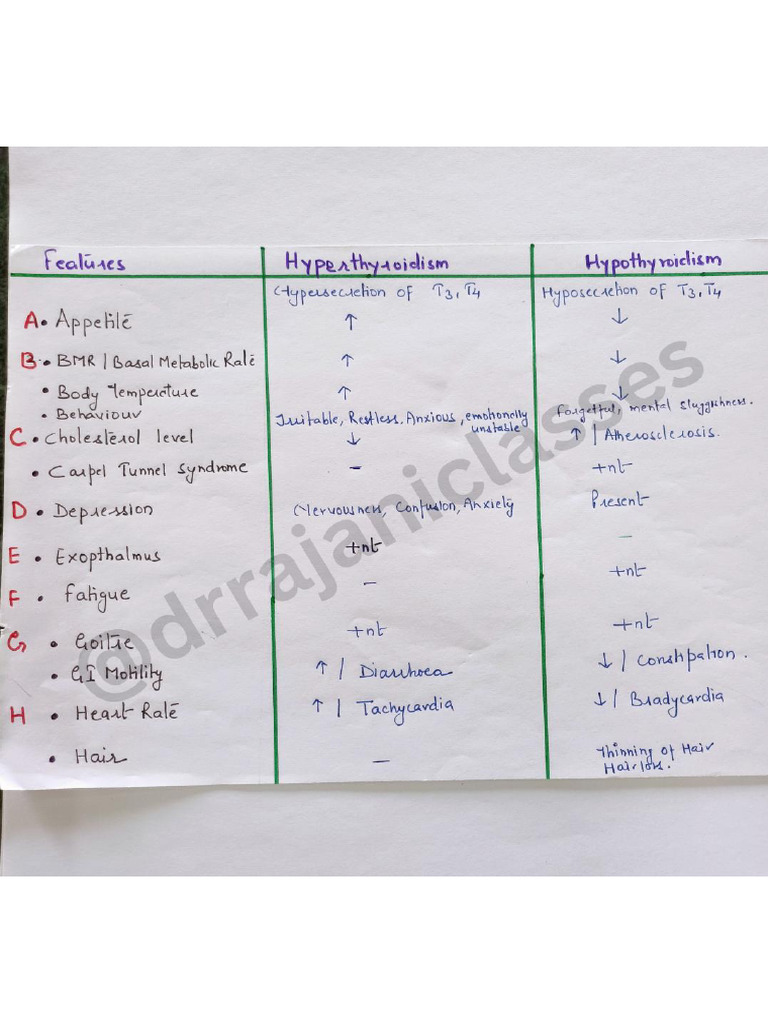 Features Hyperthyroidism Hypothyroidism
Hypersecretion of T3, T4 Hyposecretion of T3, T4
A. Appetite ↑ ↓
B. • BMR / Basal Metabolic Rate ↑ ↓
• Body Temperture ↑ ↓
• Behaviour Irritable, Restless, Anxious, emotionally unstable Forgetful, mental sluggishness.
C • Cholesterol level ↓ ↑ / Atherosclerosis.
• Carpel Tunnel Syndrome – +nt
D • Depression Nervousness, Confusion, Anxiety Present
E • Exopthalmus +nt –
F • Fatigue – +nt
G • Goitre +nt +nt
• GI Motility ↑ / Diarrhoea ↓ / Constipation.
H • Heart Rate ↑ / Tachycardia ↓ / Bradycardia
• Hair – Thinning of Hair
Hair loss.
@drrajaniclasses